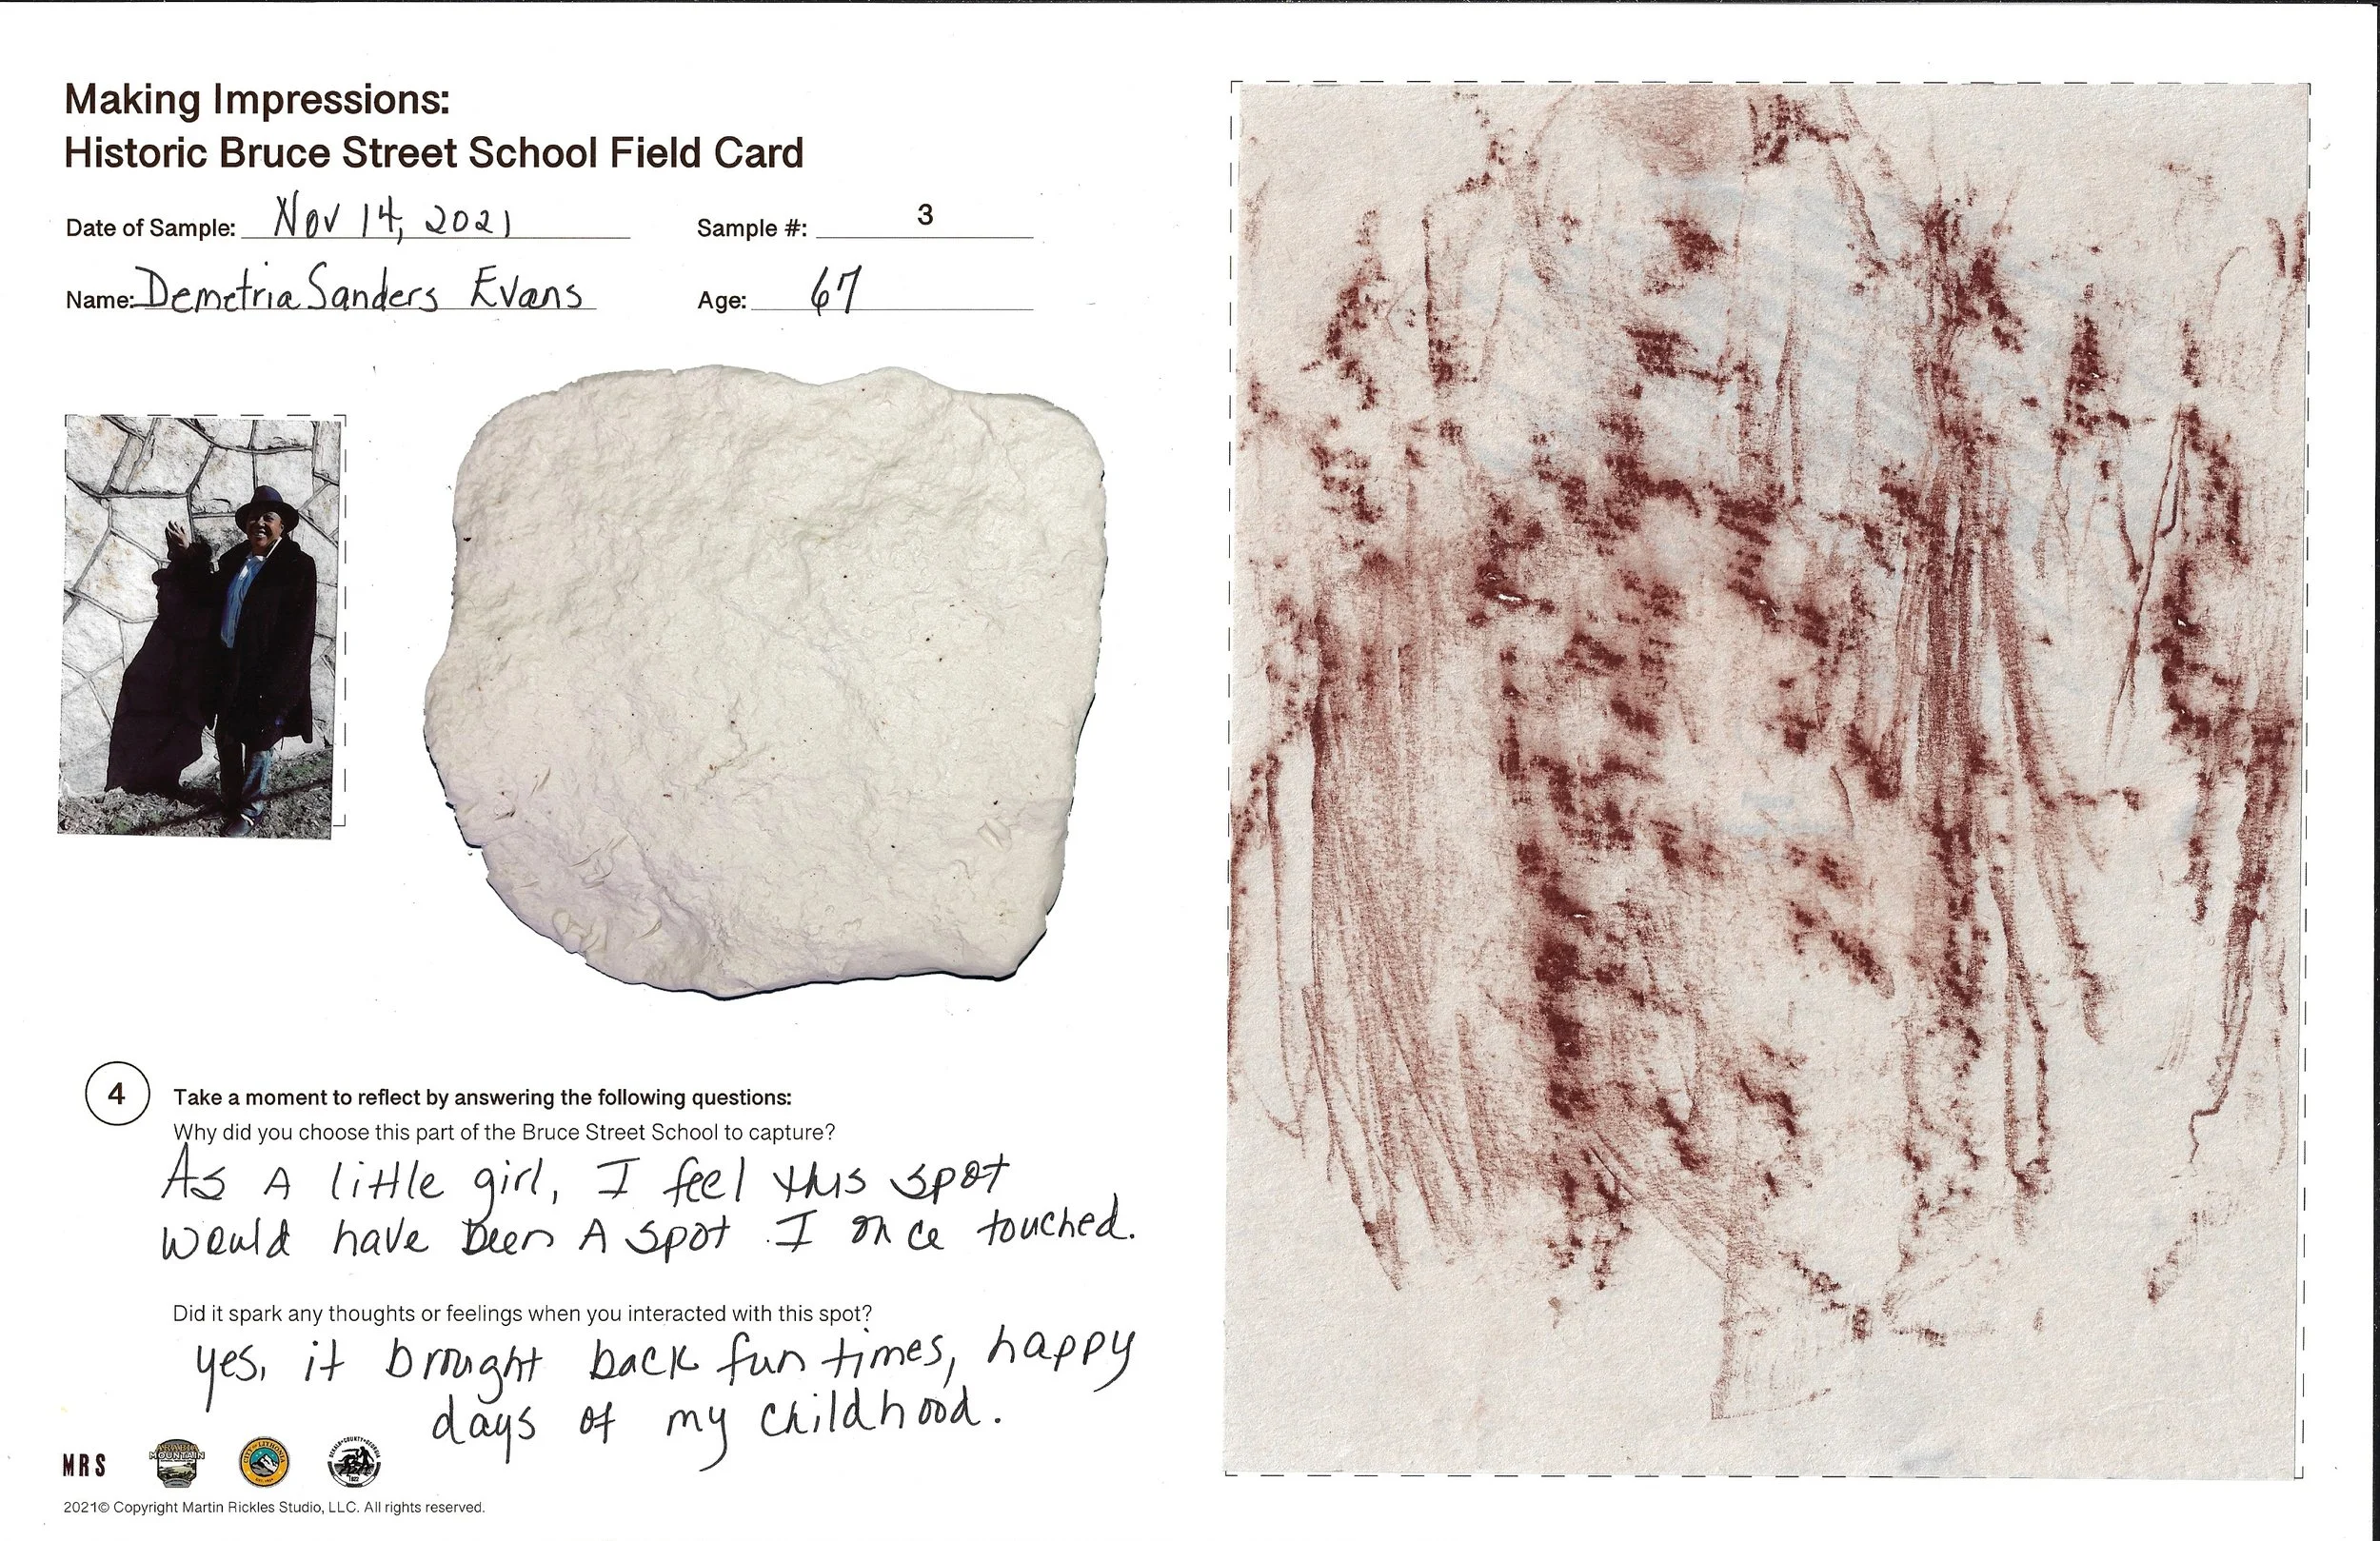 Making Impressions:
Historic Bruce Street School Field Card
Date of Sample: Nov 14, 2021
Sample #: 3
Name: Demetria Sanders Evans
Age: 67
4
Take a moment to reflect by answering the following questions:
Why did you choose this part of the Bruce Street School to capture?
As A little girl, I feel this spot
would have been A spot I once touched.
Did it spark any thoughts or feelings when you interacted with this spot?
yes, it brought back fun times, happy
days of my childhood.
MRS
ARABIA
MOUNTAIN
CITY OF LITHONIA
DEKALB COUNTY GEORGIA
1822
2021© Copyright Martin Rickles Studio, LLC. All rights reserved.